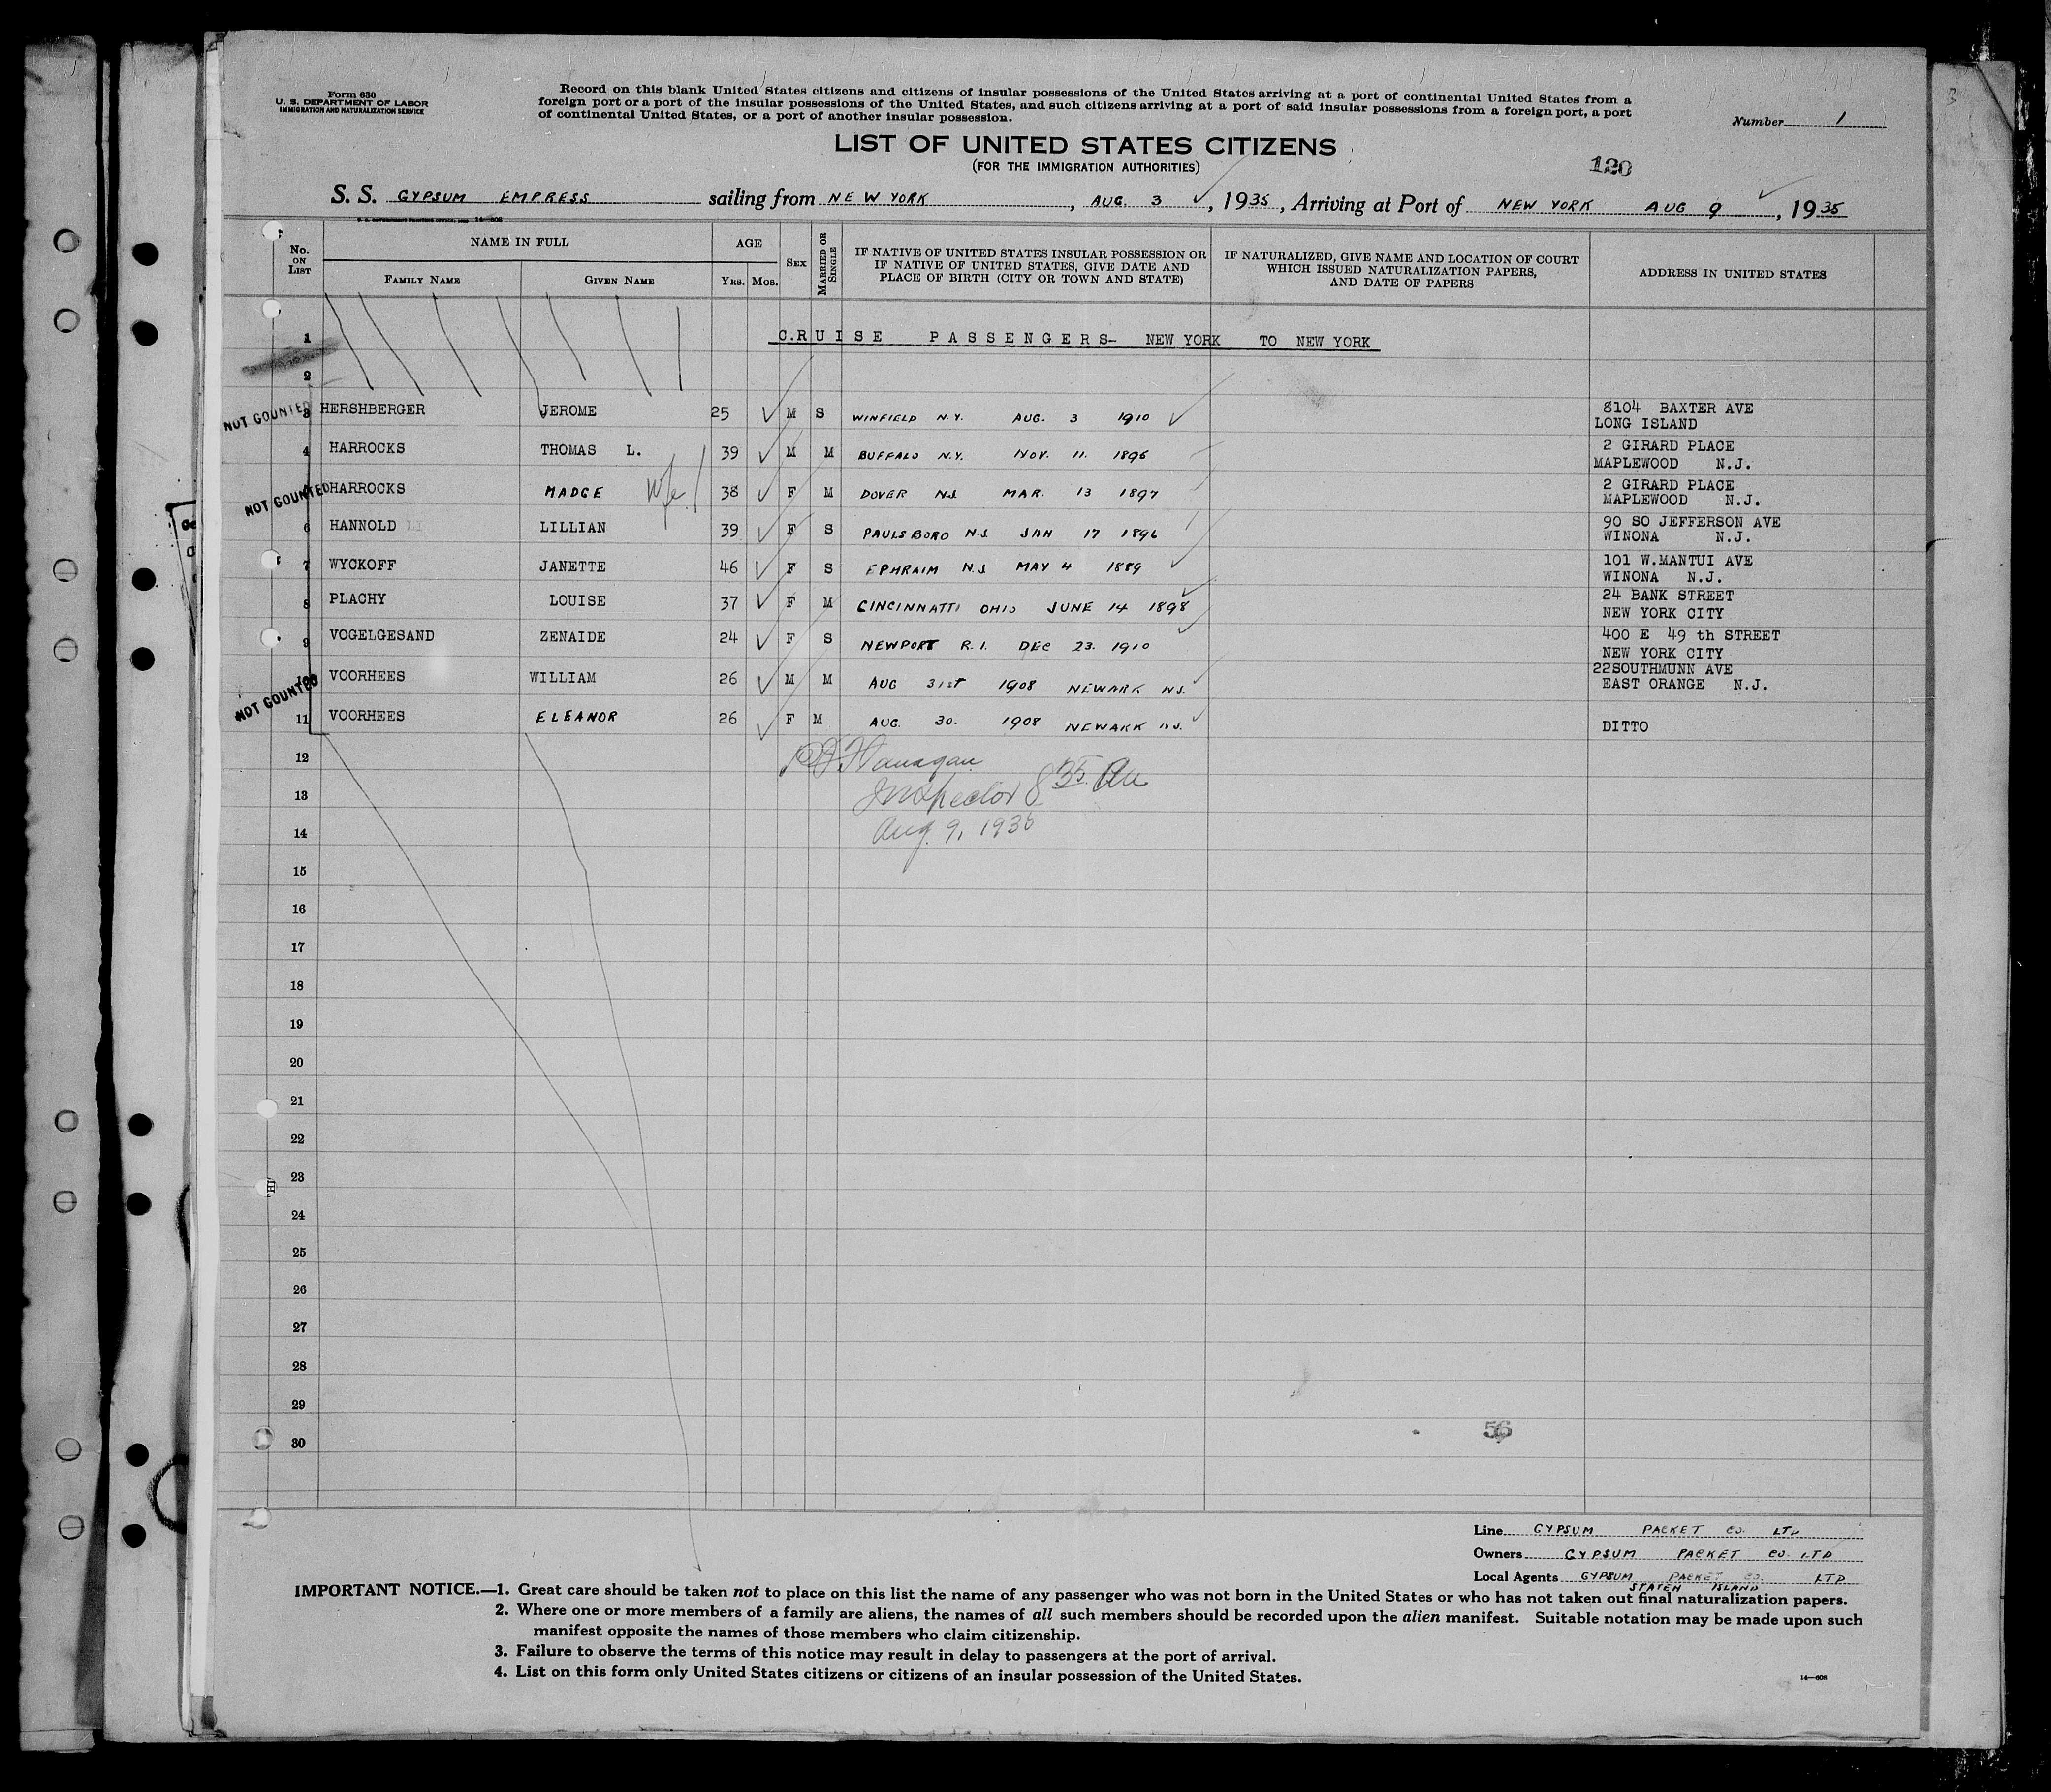 Form 630
U. S. DEPARTMENT OF LABOR
IMMIGRATION AND NATURALIZATION SERVICE
Record on this blank United States citizens and citizens of insular possessions of the United States arriving at a port of continental United States from a
foreign port or a port of the insular possessions of the United States, and such citizens arriving at a port of said insular possessions from a foreign port, a port
of continental United States, or a port of another insular possession.
Number 1
LIST OF UNITED STATES CITIZENS
(FOR THE IMMIGRATION AUTHORITIES)
120
S. S. GYPSUM EMPRESS sailing from NEW YORK, AUG. 3, 1935, Arriving at Port of NEW YORK AUG 9, 1935
No. ON LIST NAME IN FULL AGE SEX MARRIED OR SINGLE IF NATIVE OF UNITED STATES INSULAR POSSESSION OR IF NATIVE OF UNITED STATES, GIVE DATE AND PLACE OF BIRTH (CITY OR TOWN AND STATE) IF NATURALIZED, GIVE NAME AND LOCATION OF COURT WHICH ISSUED NATURALIZATION PAPERS, AND DATE OF PAPERS ADDRESS IN UNITED STATES
FAMILY NAME GIVEN NAME YRS. MOS.
1 C.RUISE PASSENGERS- NEW YORK TO NEW YORK
2
NOT COUNTED 3 HERSHBERGER JEROME 25 M S WINFIELD N.Y. AUG. 3 1910 8104 BAXTER AVE
LONG ISLAND
4 HARROCKS THOMAS L. 39 M M BUFFALO N.Y. NOV. 11. 1896 2 GIRARD PLACE
MAPLEWOOD N.J.
NOT COUNTED HARROCKS MADGE Wfe 38 F M DOVER NJ MAR. 13 1897 2 GIRARD PLACE
MAPLEWOOD N.J.
6 HANNOLD LILLIAN 39 F S PAULSBORO N.J. JAN 17 1896 90 SO JEFFERSON AVE
WINONA N.J.
7 WYCKOFF JANETTE 46 F S EPHRAIM N.J MAY 4 1889 101 W.MANTUI AVE
WINONA N.J.
8 PLACHY LOUISE 37 F M CINCINNATTI OHIO JUNE 14 1898 24 BANK STREET
NEW YORK CITY
9 VOGELGESAND ZENAIDE 24 F S NEWPORT R.I. DEC 23. 1910 400 E 49 th STREET
NEW YORK CITY
NOT COUNTED 10 VOORHEES WILLIAM 26 M M AUG 31st 1908 NEWARK NJ. 22SOUTHMUNN AVE
EAST ORANGE N.J.
11 VOORHEES ELEANOR 26 F M AUG. 30. 1908 NEWARK NJ. DITTO
12 Flanagan
13 Inspector 8 35 AM
14 Aug. 9, 1935
15
16
17
18
19
20
21
22
23
24
25
26
27
28
29
56
30
Line GYPSUM PACKET CO. LTD
Owners GYPSUM PACKET CO. LTD
Local Agents GYPSUM PACKET CO. LTD
STATEN ISLAND
IMPORTANT NOTICE.—1. Great care should be taken not to place on this list the name of any passenger who was not born in the United States or who has not taken out final naturalization papers.
2. Where one or more members of a family are aliens, the names of all such members should be recorded upon the alien manifest. Suitable notation may be made upon such
manifest opposite the names of those members who claim citizenship.
3. Failure to observe the terms of this notice may result in delay to passengers at the port of arrival.
4. List on this form only United States citizens or citizens of an insular possession of the United States.
14—608